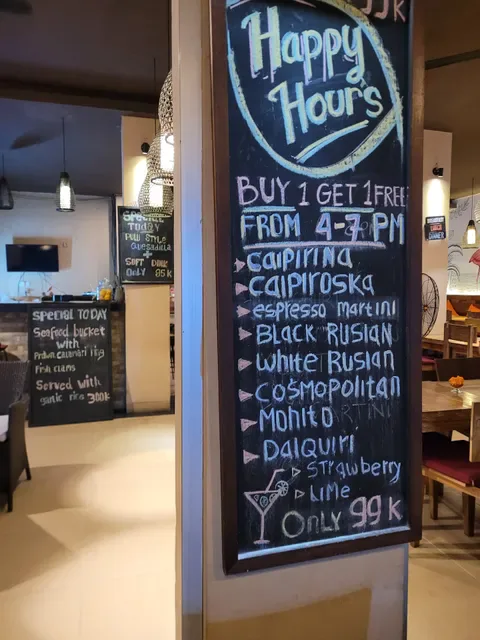 99K
Happy
Hours
BUY 1 GET 1 FREE
FROM 4-7 PM
CAIPIRINA
CAIPIROSKA
espresso martini
BLACK RUSIAN
WHITE RUSIAN
COSMOPOLITAN
MOHITO
DAIQUIRI
STRAWBERRY
LIME
ONLY 99K
SPECIAL
TODAY
QUESADILLA
+
SOFT DRINK
ONLY 85K
SPECIAL TODAY
Seafood bucket
with
Prawn calamari ring
Fish clams
Served with
garlic rice 300K